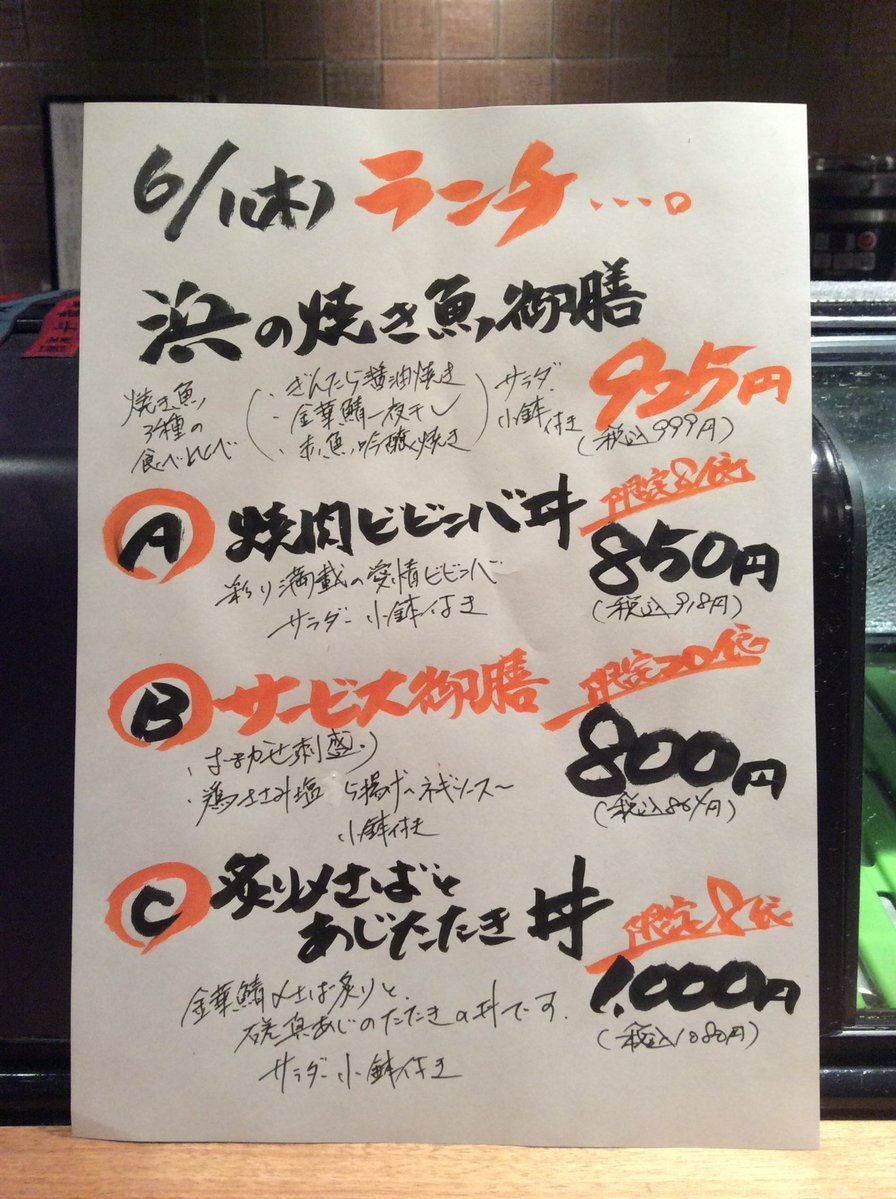 6/1(木) ランチ…。
浜の焼き魚御膳
焼き魚
3種の
食べくらべ
・ぎんたら醤油焼き
・金華鯖一夜干し
・赤魚吟醸焼き
サラダ
小鉢付き
925円
(税込999円)
A 焼肉ビビンバ丼
限定8食
850円
彩り満載の愛情ビビンバ
サラダ 小鉢付き
(税込918円)
B サービス御膳
限定20食
800円
・おまかせ刺盛り
・鶏ささみ塩から揚げ〜ネギソース〜
小鉢付き
(税込864円)
C 炙り〆さばと
あじたたき丼
限定8食
1,000円
金華鯖〆さば炙りと、
真あじのたたきの丼です。
サラダ 小鉢付き
(税込1080円)